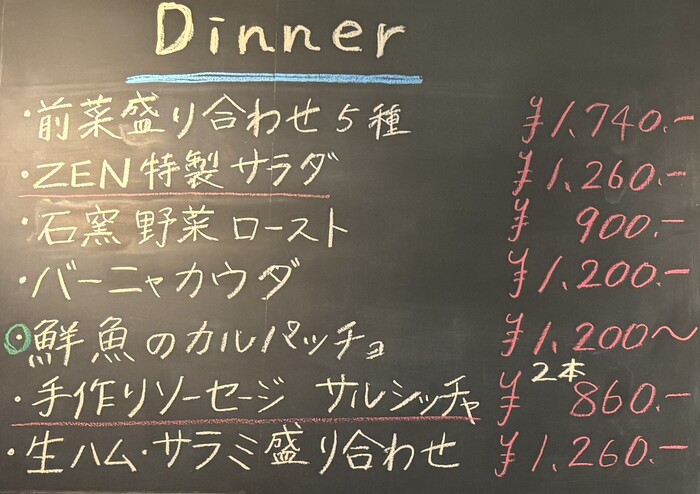 Dinner
・前菜盛り合わせ5種 ¥1,740.-
・ZEN特製サラダ ¥1,260.-
・石窯野菜ロースト ¥900.-
・バーニャカウダ ¥1,200.-
・鮮魚のカルパッチョ ¥1,200〜
・手作りソーセージ サルシッチャ 2本 ¥860.-
・生ハム・サラミ盛り合わせ ¥1,260.-